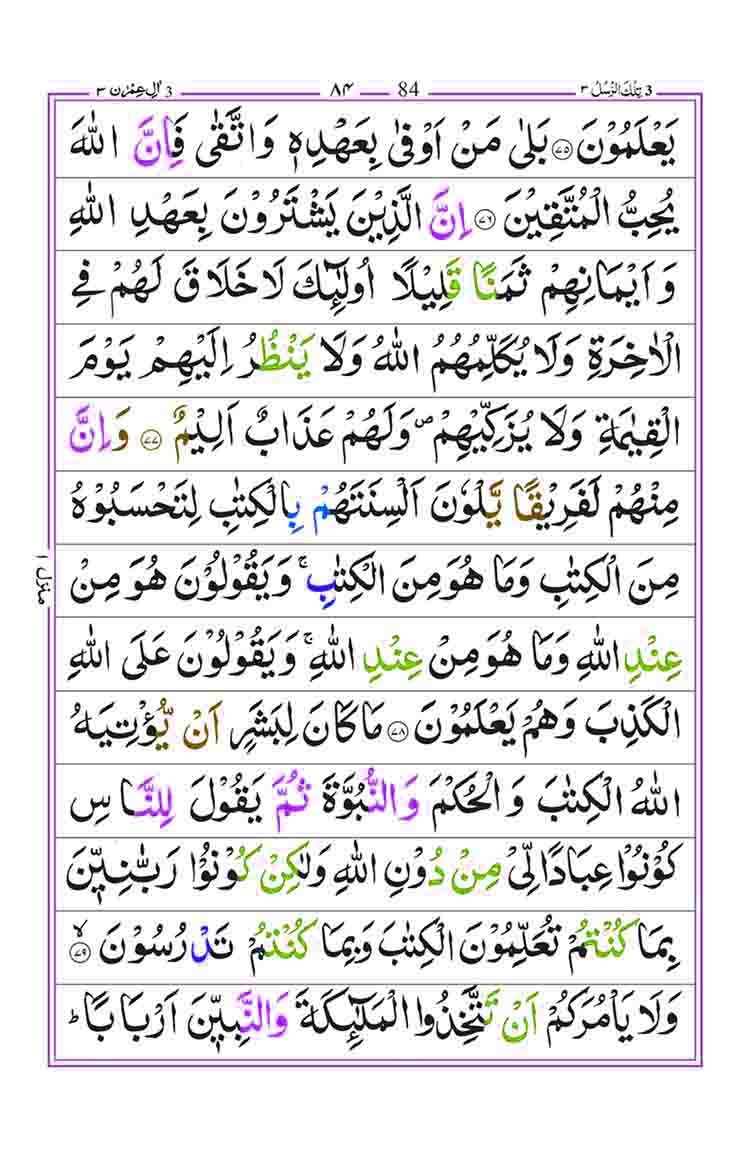 3 تِلْكَ الرُّسُلُ ۳ 84 ۸۴ 3 اٰلِ عِمْرٰن ۳
يَعْلَمُوْنَ ۝۷۵ بَلٰى مَنْ اَوْفٰى بِعَهْدِهٖ وَاتَّقٰى فَاِنَّ اللّٰهَ
يُحِبُّ الْمُتَّقِيْنَ ۝۷۶ اِنَّ الَّذِيْنَ يَشْتَرُوْنَ بِعَهْدِ اللّٰهِ
وَاَيْمَانِهِمْ ثَمَنًا قَلِيْلًا اُولٰٓئِكَ لَا خَلَاقَ لَهُمْ فِي
الْاٰخِرَةِ وَلَا يُكَلِّمُهُمُ اللّٰهُ وَلَا يَنْظُرُ اِلَيْهِمْ يَوْمَ
الْقِيٰمَةِ وَلَا يُزَكِّيْهِمْ ۖ وَلَهُمْ عَذَابٌ اَلِيْمٌ ۝۷۷ وَاِنَّ
مِنْهُمْ لَفَرِيْقًا يَّلْوٗنَ اَلْسِنَتَهُمْ بِالْكِتٰبِ لِتَحْسَبُوْهُ
مِنَ الْكِتٰبِ وَمَا هُوَ مِنَ الْكِتٰبِ ۚ وَيَقُوْلُوْنَ هُوَ مِنْ
عِنْدِ اللّٰهِ وَمَا هُوَ مِنْ عِنْدِ اللّٰهِ ۚ وَيَقُوْلُوْنَ عَلَى اللّٰهِ
الْكَذِبَ وَهُمْ يَعْلَمُوْنَ ۝۷۸ مَا كَانَ لِبَشَرٍ اَنْ يُّؤْتِيَهُ
اللّٰهُ الْكِتٰبَ وَالْحُكْمَ وَالنُّبُوَّةَ ثُمَّ يَقُوْلَ لِلنَّاسِ
كُوْنُوْا عِبَادًا لِّيْ مِنْ دُوْنِ اللّٰهِ وَلٰكِنْ كُوْنُوْا رَبّٰنِيّٖنَ
بِمَا كُنْتُمْ تُعَلِّمُوْنَ الْكِتٰبَ وَبِمَا كُنْتُمْ تَدْرُسُوْنَ ۙ۝۷۹
وَلَا يَاْمُرَكُمْ اَنْ تَتَّخِذُوا الْمَلٰٓئِكَةَ وَالنَّبِيّٖنَ اَرْبَابًا ؕ
منزل ۱